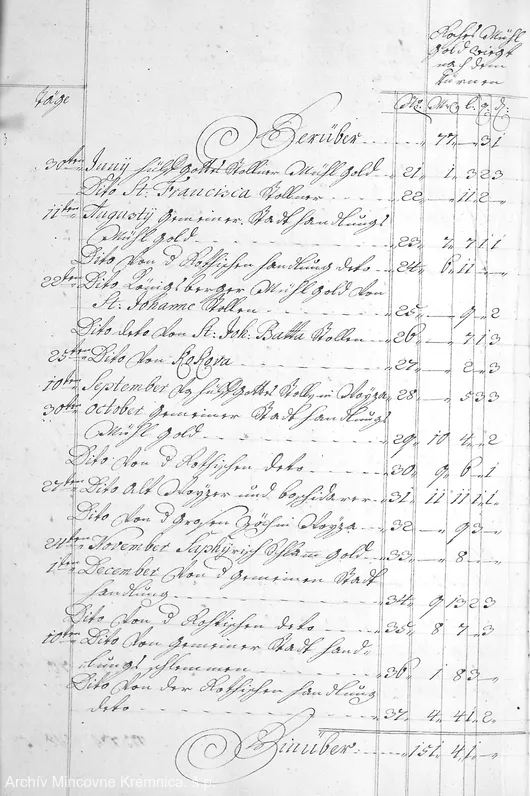 Rohes Mühl
Gold wiegt
nach dem
brennen
Täge
No. M. l. q. d.
Herüber 77 — 3 1
30ten Junÿ hülf Gottes Stollner Mühl Gold 21 1 3 2 3
Dito St. Francisca Stollner 22 — 11 2 —
11ten Augustÿ Gemeiner Stadt handlungs
Mühl Gold 23 7 7 1 1
Dito von d Rothischen handlung deto 24 6 11 — —
22ten Dito Königsberger Mühl Gold von
St. Johanne Stollen 25 — 9 — 2
Dito deto von St. Joh. Batta Stollen 26 — 7 1 3
25ten Dito von Kokova 27 — 2 — 3
10ten September hülf Gottes Stolln 28 — 5 3 3
30ten October Gemeiner Stadt handlungs
Mühl Gold 29 10 4 — 2
Dito von d Rothischen deto 30 9 6 — 1
27ten Dito Alt und 31 11 11 1 1
Dito von d Grossen 32 — 9 3 —
24ten November Schlam Gold 33 — 8 — —
1ten December von d Gemeinen Stadt
handlung 34 9 13 2 3
Dito von d Rothischen deto 35 8 7 — 3
10ten Dito von Gemeiner Stadt hand-
lungs schlemmen 36 1 8 3 —
Dito von der Rothischen handlung
deto 37 4 4 1 2
Hinüber 151 4 1 —
Archív Mincovne Kremnica, š.p.